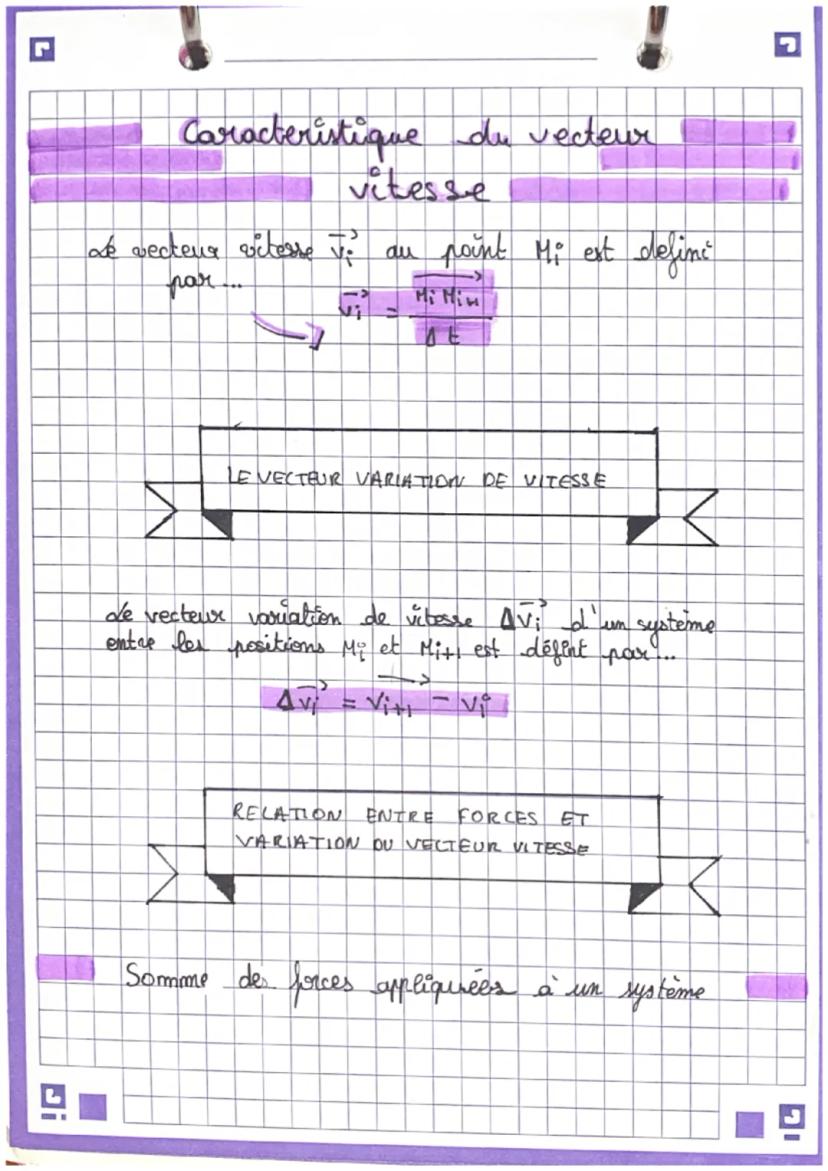 Caracteristique du vecteur
vitesse
Le vecteur vitesse v⃗i au point Mi est defini
par...
v⃗i = MiMi+1 / Δt
LE VECTEUR VARIATION DE VITESSE
Le vecteur variation de vitesse Δv⃗i d'un système
entre les positions Mi et Mi+1 est défint par...
Δv⃗i = v⃗i+1 - vi
RELATION ENTRE FORCES ET
VARIATION DU VECTEUR VITESSE
Somme des forces appliquées à un système